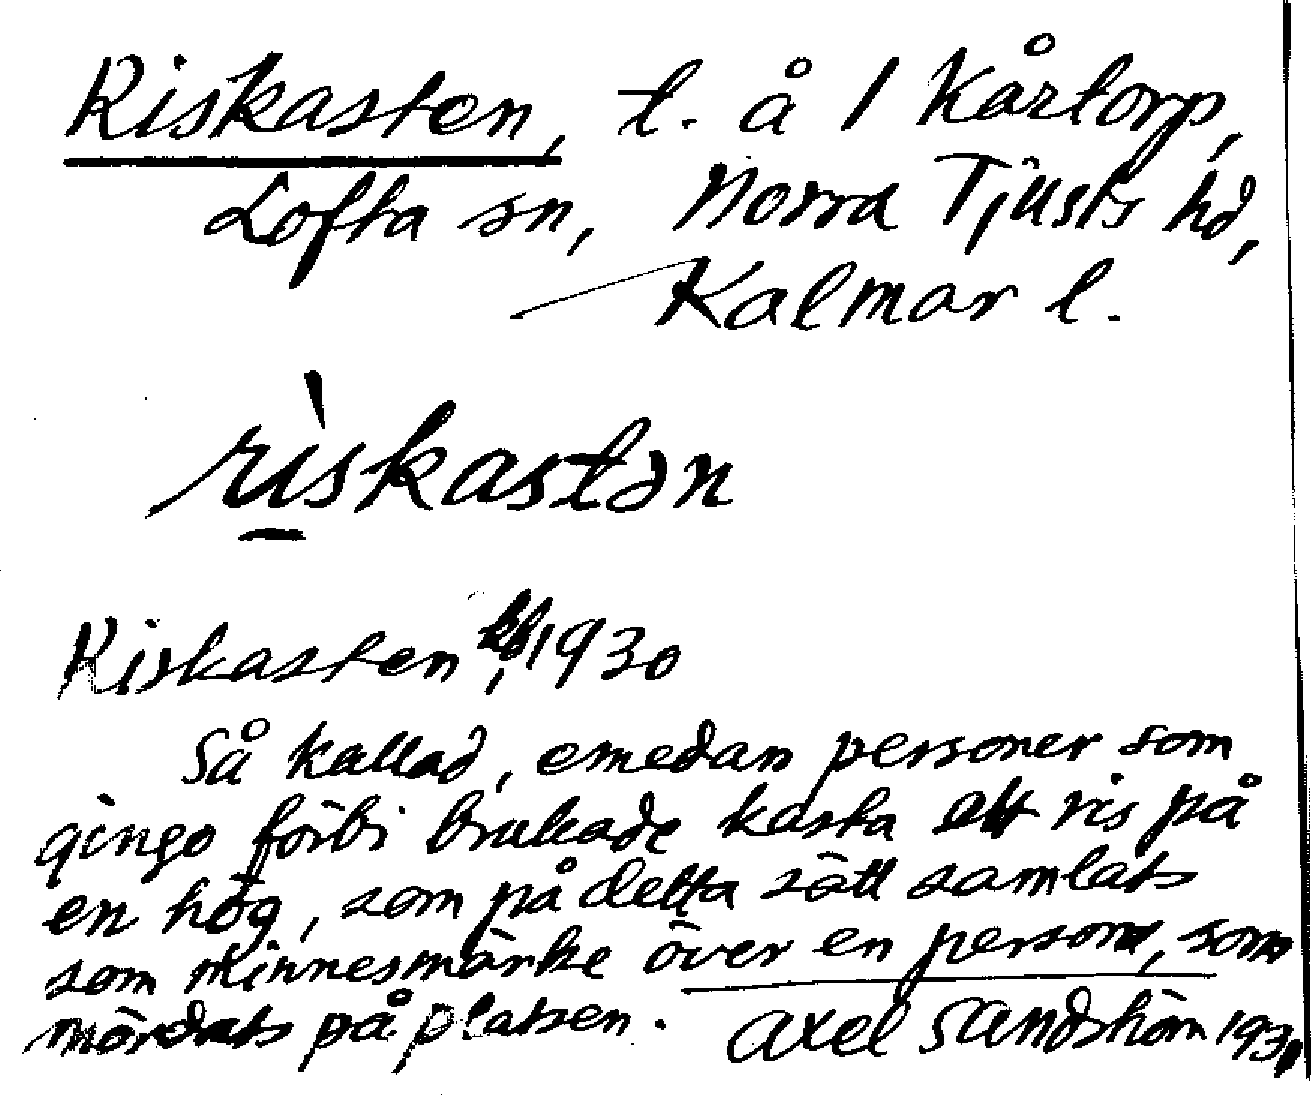 Riskasten, t. å 1 Kårtorp,
Lofta sn, Norra Tjusts hd,
Kalmar l.
rìskastən
Riskasten, 1930
Så kallad, emedan personer som
gingo förbi brukade kasta ett ris på
en hög, som på detta sätt samlats
som minnesmärke över en person, som
mördats på platsen. Axel Sandström